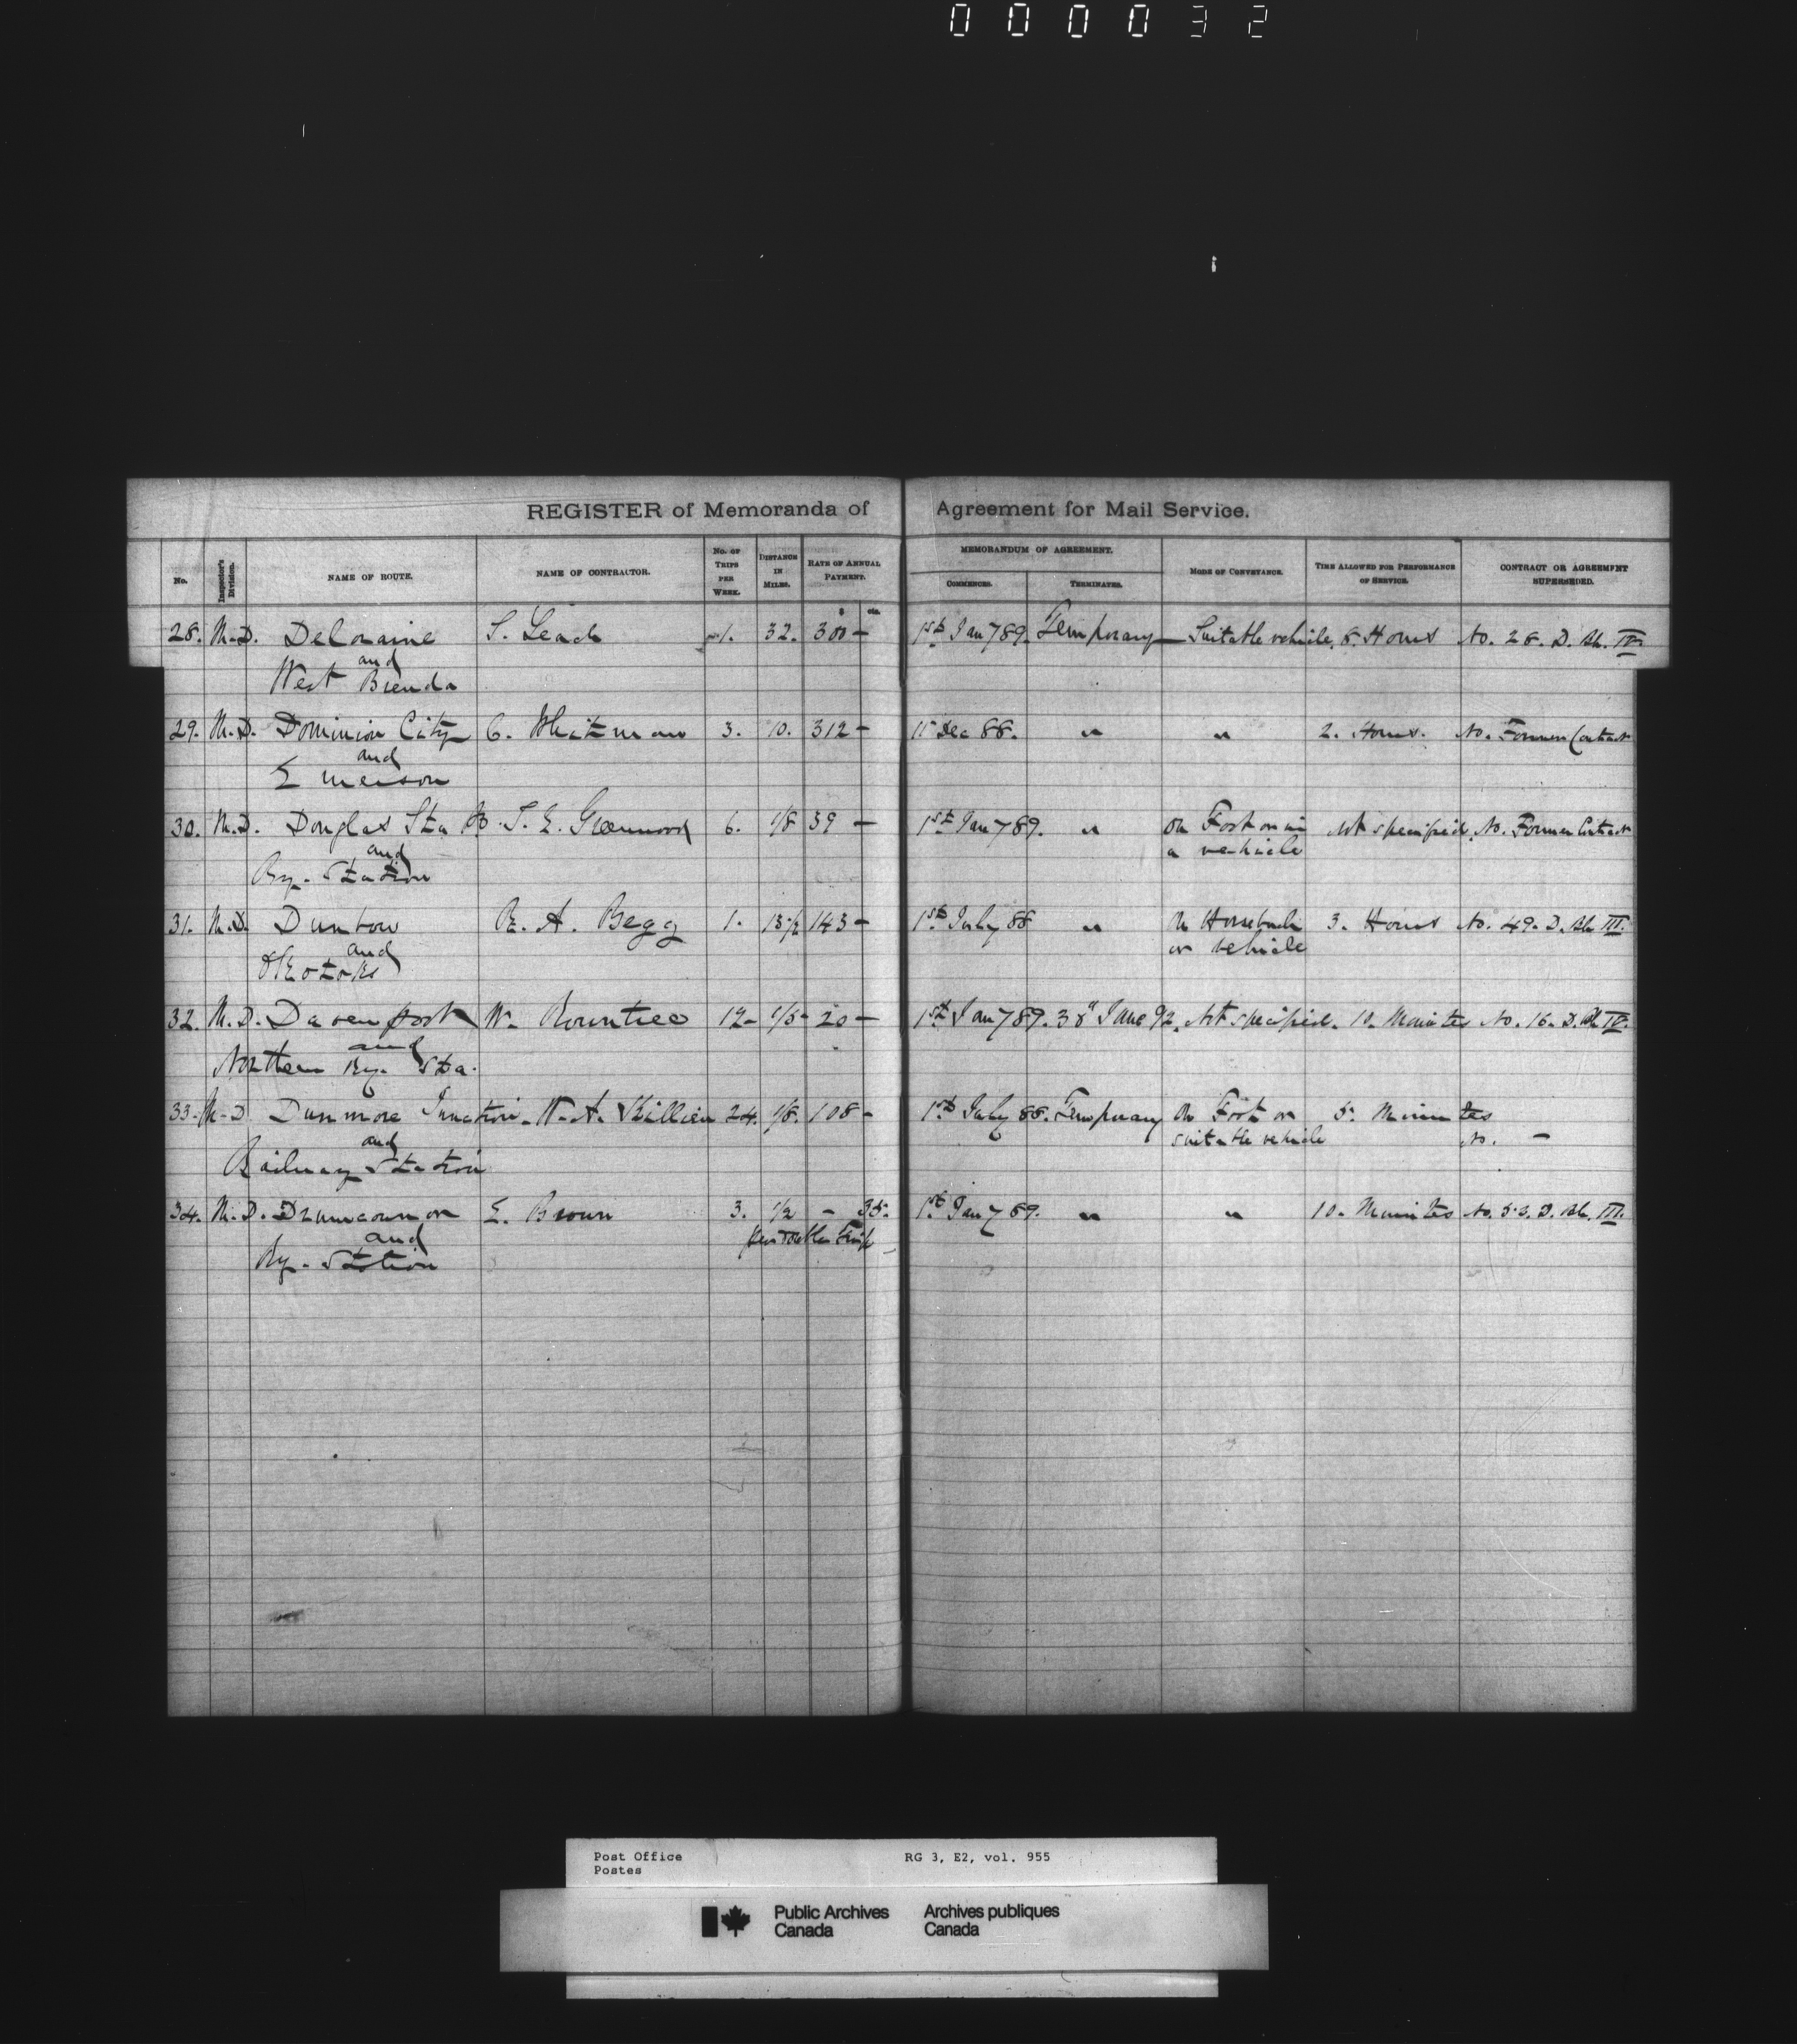 000032
REGISTER of Memoranda of Agreement for Mail Service.
No. Inspector's Division. NAME OF ROUTE. NAME OF CONTRACTOR. No. OF TRIPS PER WEEK. DISTANCE IN MILES. RATE OF ANNUAL PAYMENT. MEMORANDUM OF AGREEMENT. COMMENCES. TERMINATES. MODE OF CONVEYANCE. TIME ALLOWED FOR PERFORMANCE OF SERVICE. CONTRACT OR AGREEMENT SUPERSEDED.
$ cts.
28. M.D. Deloraine S. Leach 1. 32. 300 — 1st Jany 89. Temporary — Suitable vehicle. 8. Hours No. 28. D. Bk. IV.
and
West Brenda
29. M.D. Dominion City C. Whitman 3. 10. 312 — Dec 88. " " 2. Hours. No. Former Contract
and
Emerson
30. M.D. Douglas Sta PO. T. E. Greenwood 6. 1/8 39 — 1st Jany 89. " On Foot or in Not specified. No. Former Contract
a vehicle
and
Ry. Station
31. M.D. Dunbow R. A. Begg 1. 13½ 143 — 1st July 88 " On Horseback 3. Hours No. 49. D. Bk. III.
or vehicle
and
Okotoks
32. M.D. Davenport W. Rountree 12 - 1/5 - 20 — 1st Jany 89. 30th June 92. Not specified. 10. Minutes No. 16. D. Bk IV.
and
Northern Ry. Sta.
33 - M - D Dunmore Junction. W. A. Skillien 24. 1/8. 108 - 1st July 88. Temporary On Foot or 5. Minutes
suitable vehicle No. —
and
Railway Station
34. M.D. Drumconnor E. Brown 3. 1/2 - 35. 1st Jany 89. " " 10. Minutes No. 53. D. Bk. III.
per Double Trip
and
Ry. Station
Post Office RG 3, E2, vol. 955
Postes
Public Archives Archives publiques
Canada Canada